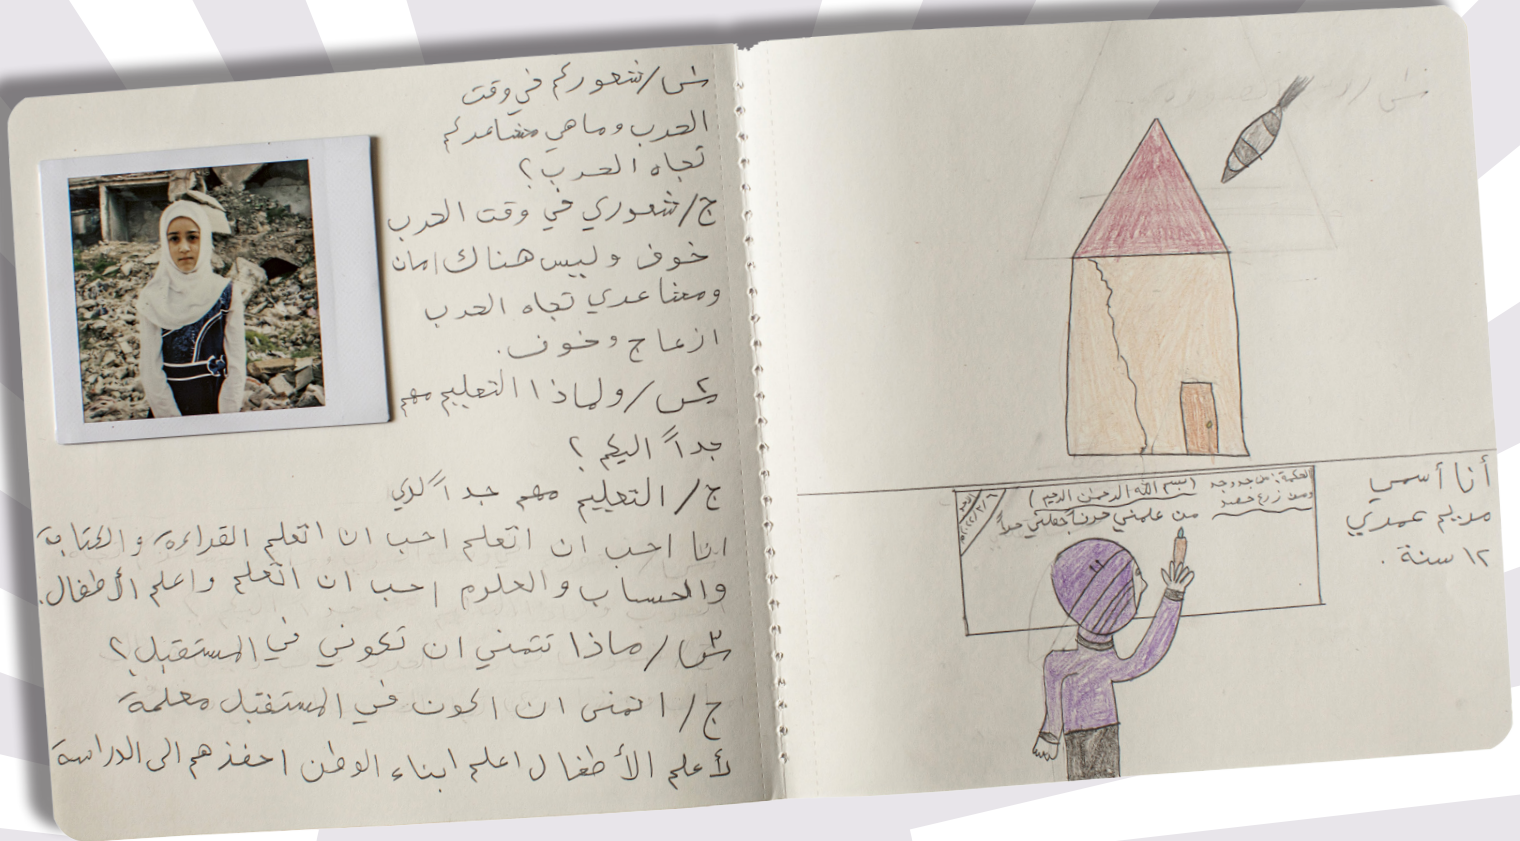 س١/شعوركم في وقت
الحرب وماهي مشاعركم
تجاه الحرب؟
ج/شعوري في وقت الحرب
خوف وليس هناك امان
ومشاعري تجاه الحرب
ازعاج وخوف.
س٢/ولماذا التعليم مهم
جداً اليكم؟
ج/التعليم مهم جداً لدي
انا احب ان اتعلم احب ان اتعلم القراءة والكتابة
والحساب والعلوم احب ان اتعلم واعلم الأطفال.
س٣/ماذا تتمني ان تكوني في المستقبل؟
ج/اتمنى ان اكون في المستقبل معلمة
لأعلم الأطفال اعلم ابناء الوطن احفذهم الى الدراسة
(بسم الله الرحمن الرحيم)
الحكمة: من جد وجد
ومن زرع حصد
من علمني حرفاً
أنا أسمي
مريم
١٢ سنة.